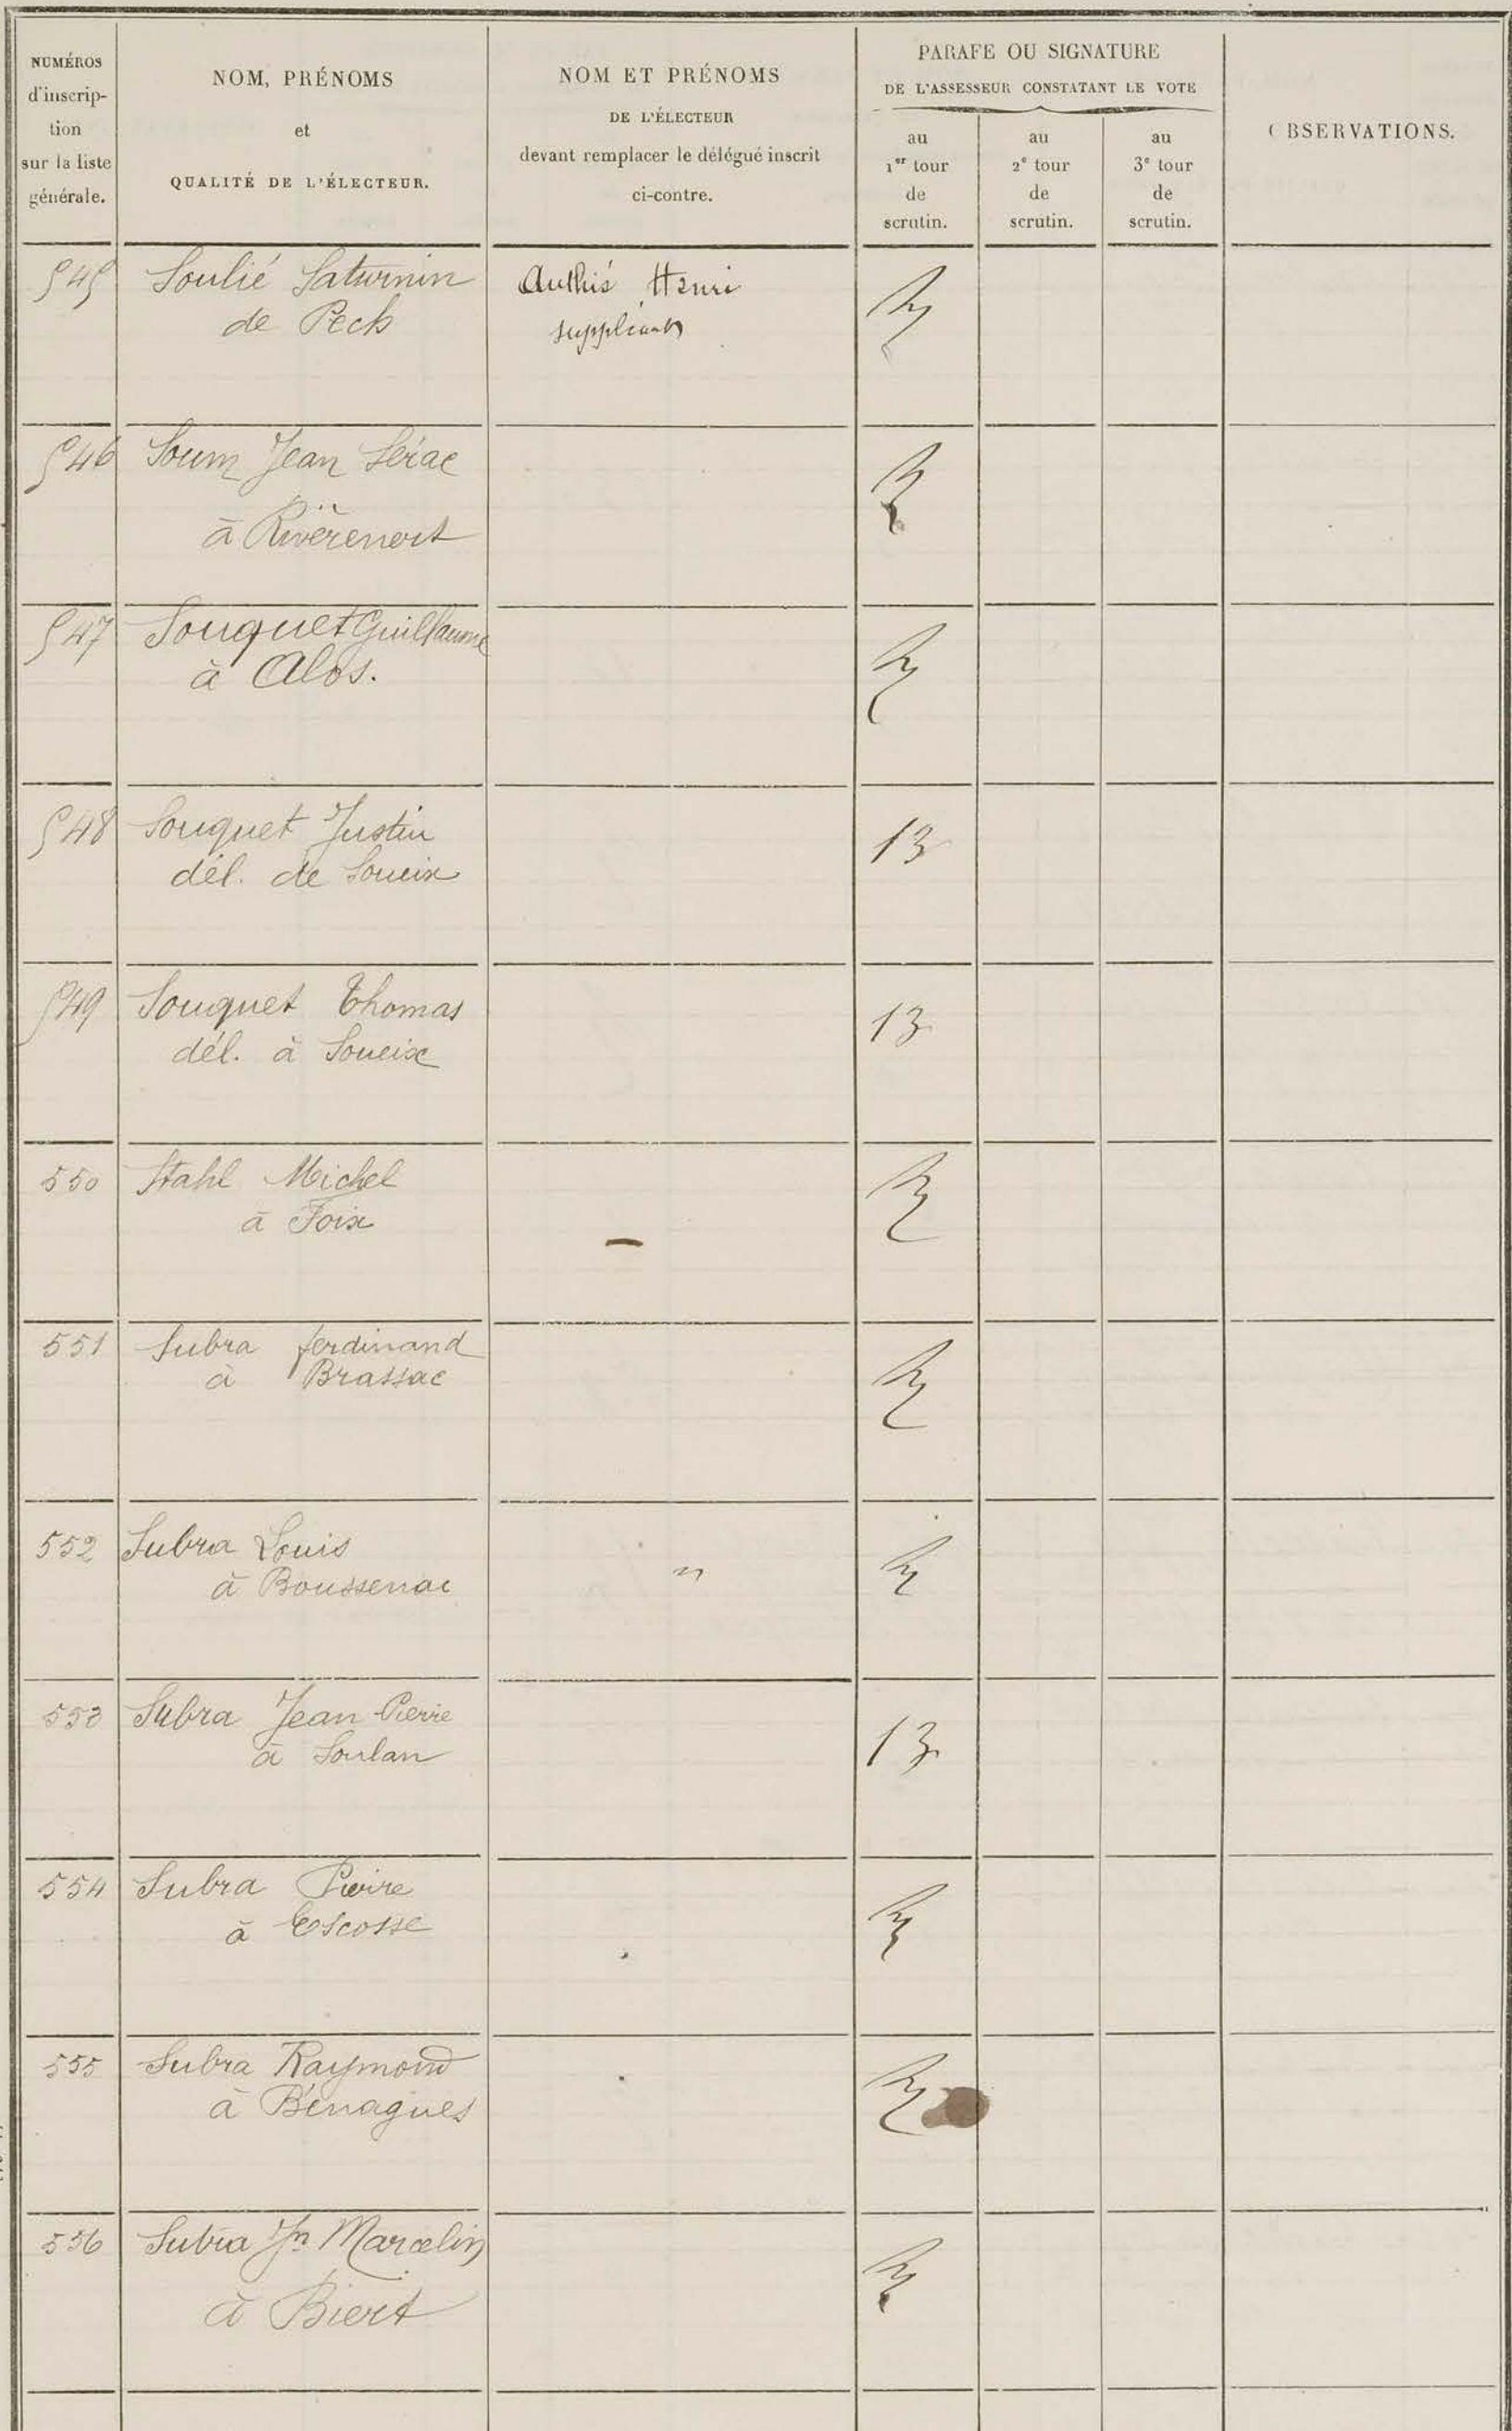 NUMÉROS
d'inscrip-
tion
sur la liste
générale.
NOM, PRÉNOMS
et
QUALITÉ DE L'ÉLECTEUR.
NOM ET PRÉNOMS
DE L'ÉLECTEUR
devant remplacer le délégué inscrit
ci-contre.
PARAFE OU SIGNATURE
DE L'ASSESSEUR CONSTATANT LE VOTE
au
1er tour
de
scrutin.
au
2e tour
de
scrutin.
au
3e tour
de
scrutin.
OBSERVATIONS.
545 Soulié Saturnin Authié Henri
de Pech suppléant
546 Soum Jean Sérac
à Rivèrenert
547 Souquet Guillaume
à Alos.
548 Souquet Justin 13
dél. de Soueix
549 Souquet Thomas 13
dél. à Soueix
550 Stahl Michel
à Foix
—
551 Subra ferdinand
à Brassac
552 Subra Louis "
à Boussenac
553 Subra Jean-Pierre 13
à Soulan
554 Subra Pierre
à Escosse
555 Subra Raymond
à Bénagues
556 Subra Jn Marcelin
à Biert